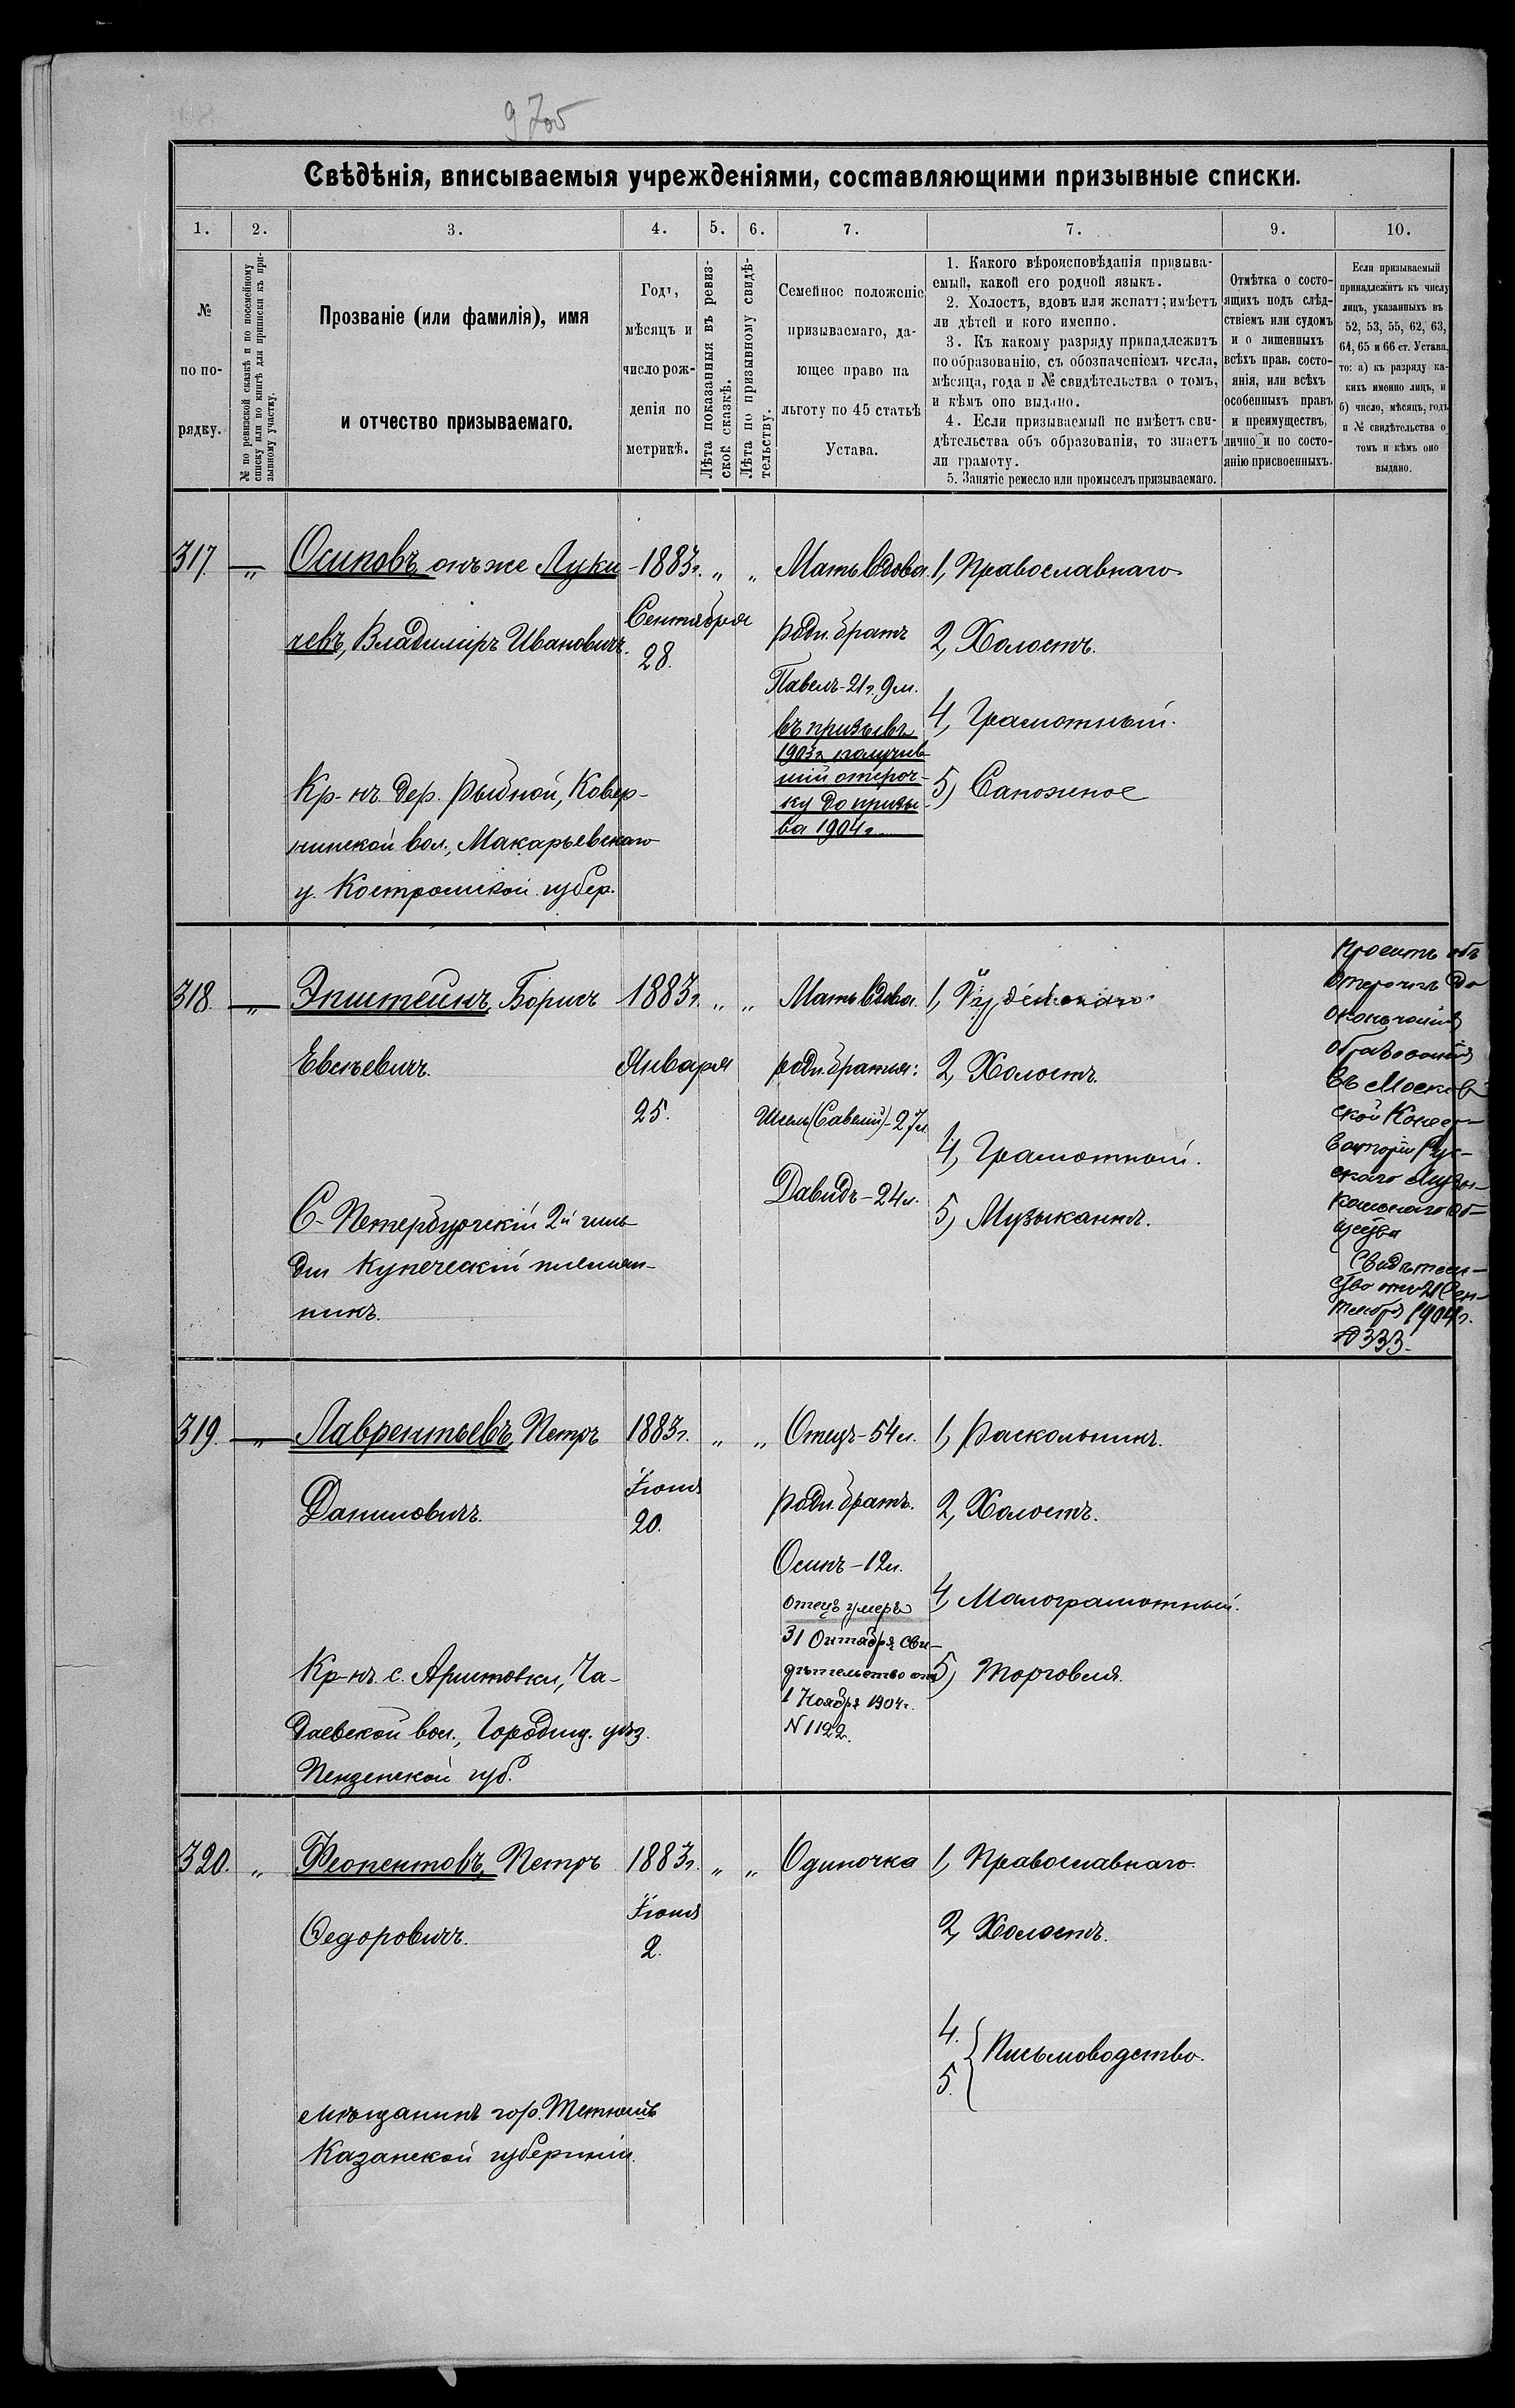 970
Свѣдѣнія, вписываемыя учрежденіями, составляющими призывные списки.
1. 2. 3. 4. 5. 6. 7. 7. 9. 10.
№
по по-
рядку.
№ по ревизской сказкѣ и по посемейному
списку или по книгѣ для приписки къ при-
зывному участку.
Прозваніе (или фамилія), имя
и отчество призываемаго.
Годъ,
мѣсяцъ и
число рож-
денія по
метрикѣ.
Лѣта показанныя въ ревиз-
ской сказкѣ.
Лѣта по призывному свидѣ-
тельству.
Семейное положеніе
призываемаго, да-
ющее право на
льготу по 45 статьѣ
Устава.
1. Какого вѣроисповѣданія призыва-
емый, какой его родной языкъ.
2. Холостъ, вдовъ или женатъ; имѣетъ
ли дѣтей и кого именно.
3. Къ какому разряду принадлежитъ
по образованію, съ обозначеніемъ числа,
мѣсяца, года и № свидѣтельства о томъ,
и кѣмъ оно выдано.
4. Если призываемый не имѣетъ сви-
дѣтельства объ образованіи, то знаетъ
ли грамоту.
5. Занятіе ремесло или промыселъ призываемаго.
Отмѣтка о состо-
ящихъ подъ слѣд-
ствіемъ или судомъ
и о лишенныхъ
всѣхъ прав. состо-
янія, или всѣхъ
особенныхъ правъ
и преимуществъ,
лично и по состо-
янію присвоенныхъ.
Если призываемый
принадлежитъ къ числу
лицъ, указанныхъ въ
52, 53, 55, 62, 63,
64, 65 и 66 ст. Устава,
то: а) къ разряду ка-
кихъ именно лицъ, и
б) число, мѣсяцъ, годъ
и № свидѣтельства о
томъ и кѣмъ оно
выдано.
317. „ Осиповъ онъ же Луки-
чевъ, Владиміръ Ивановичъ.
Кр-нъ дер. Рыбной, Ковер-
нинской вол., Макарьевскаго
у. Костромской губер.
1883г.
Сентября
28.
„ „
Мать вдова.
родн. братъ
Павелъ-21г. 9м.
въ призывѣ
1903г. получив-
шій отсроч-
ку до призы-
ва 1904г.
1, Православнаго
2, Холостъ.
4, Грамотный.
5) Сапожное
318. „ Эпштейнъ, Борисъ
Евсѣевичъ.
С-Петербургскій 2й гиль-
діи купеческій племян-
никъ.
1883г.
Января
25.
„ „
Мать вдова.
родн. братья:
(Савелій)-27л.
Давидъ-24л.
1, Іудейскаго
2, Холостъ.
4, Грамотный.
5) Музыкантъ.
Проситъ объ
отсрочкѣ до
окончанія
образованія
въ Москов-
ской Консер-
ваторіи Рус-
скаго Музы-
кальнаго Об-
щества
Свидѣтель-
ство отъ 21 Сен-
тября 1904г.
№ 333.
319. „ Лаврентьевъ, Петръ
Даниловичъ.
Кр-нъ с. Аришовки, Ча-
даевской вол., Городищ. уѣз.
Пензенской губ.
1883г.
Іюня
20.
„ „
Отецъ-54л.
родн. братъ.
Осипъ-12л.
отецъ умеръ
31 Октября сви-
дѣтельство отъ
1 Ноября 1904г.
N 1122.
1, Раскольникъ.
2, Холостъ.
4, Малограмотный.
5) Торговля.
320. „ Феопентовъ, Петръ
Федоровичъ.
Мѣщанинъ гор. Тетюшъ
Казанской губерніи.
1883г.
Іюня
2.
„ „
Одиночка
1, Православнаго.
2, Холостъ.
4.
5. Письмоводство.